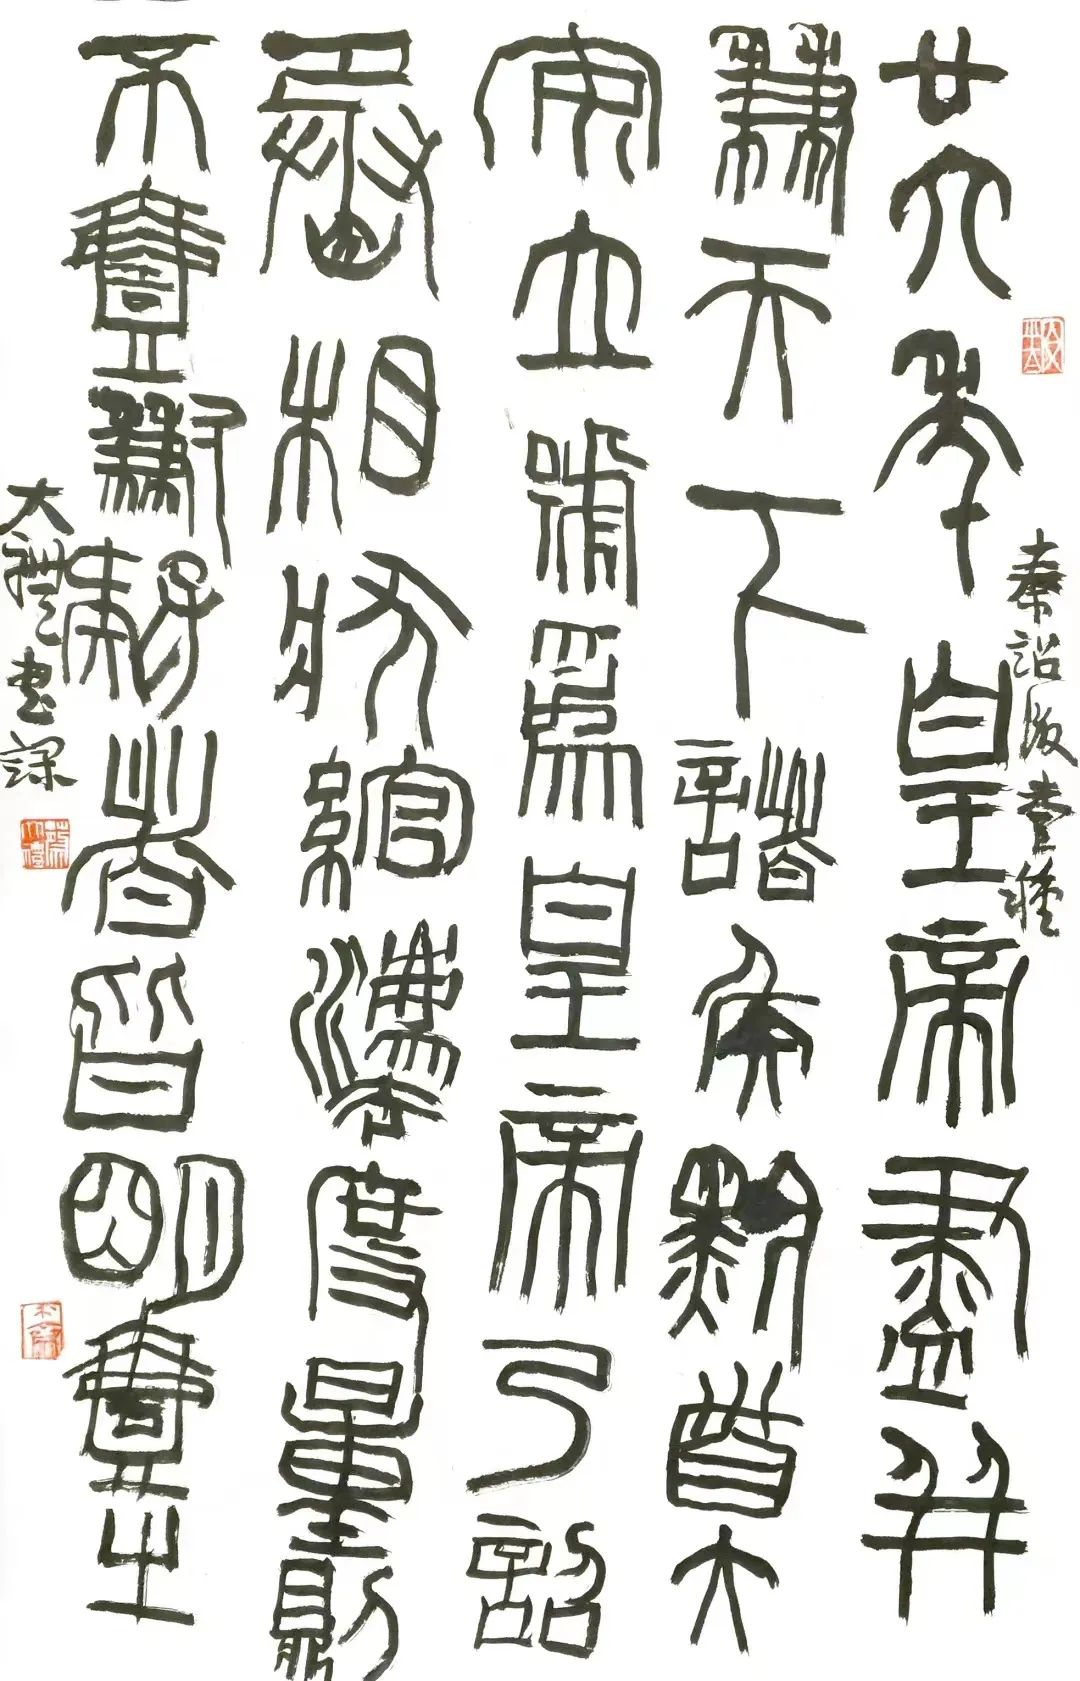 秦詔版壹種
廿六年皇帝盡并
兼天下諸侯黔首大
安立號為皇帝乃詔
丞相狀綰灋度量則
不壹歉疑者皆明壹之
大禮書課